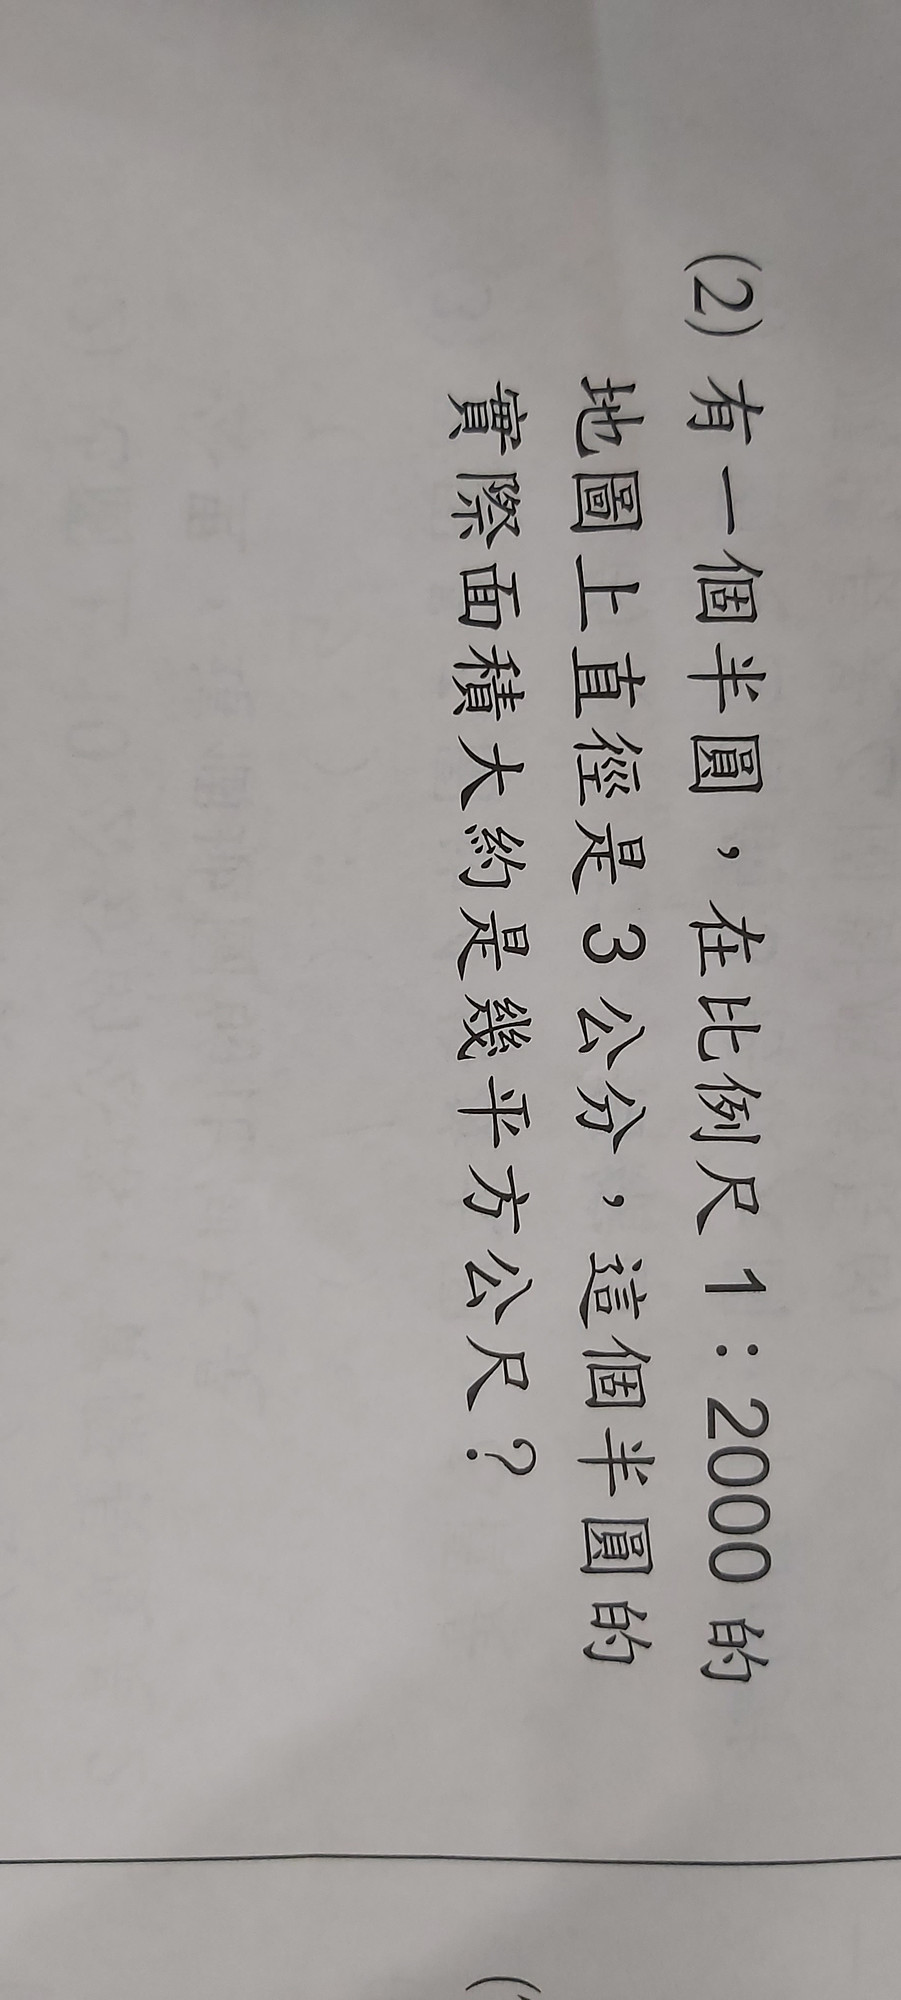 (2) 有一個半圓，在比例尺 1：2000 的
地圖上直徑是 3 公分，這個半圓的
實際面積大約是幾平方公尺？